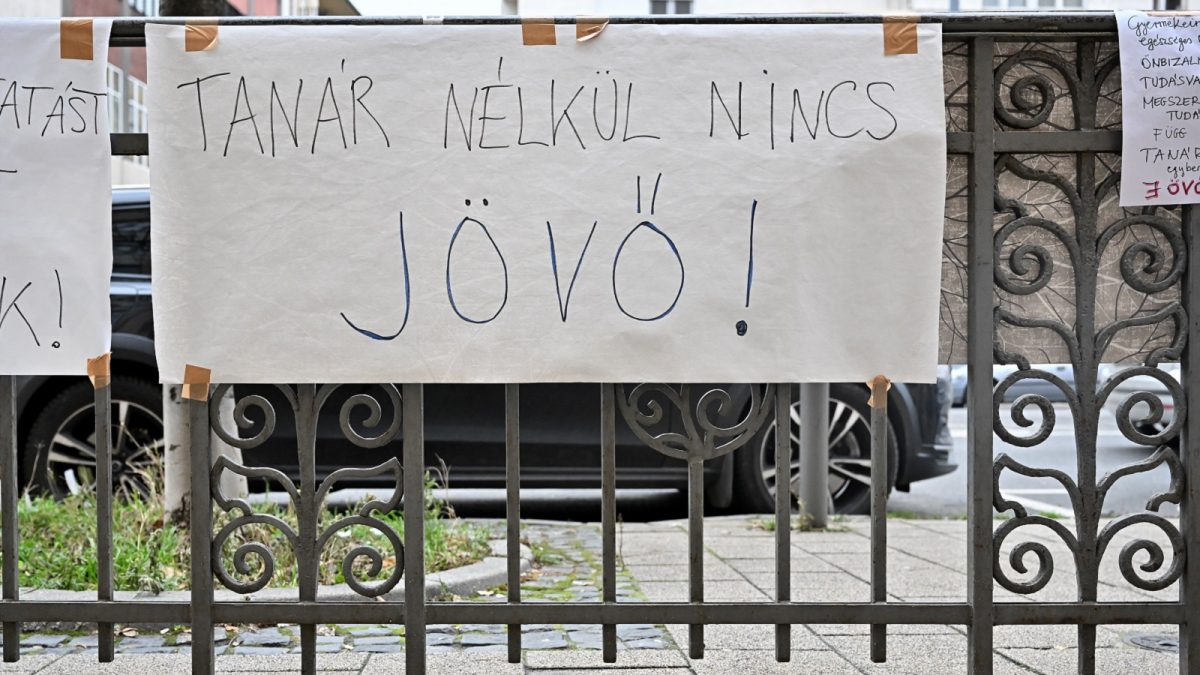 TANÁR NÉLKÜL NINCS
JÖVŐ!
ATÁST
K!
Gyermekein
egészséges
ÖNBIZAL
TUDÁSVÁ
MEGSZER
TUDÁ
FÜGG
TANÁR
egyben
JÖVŐ